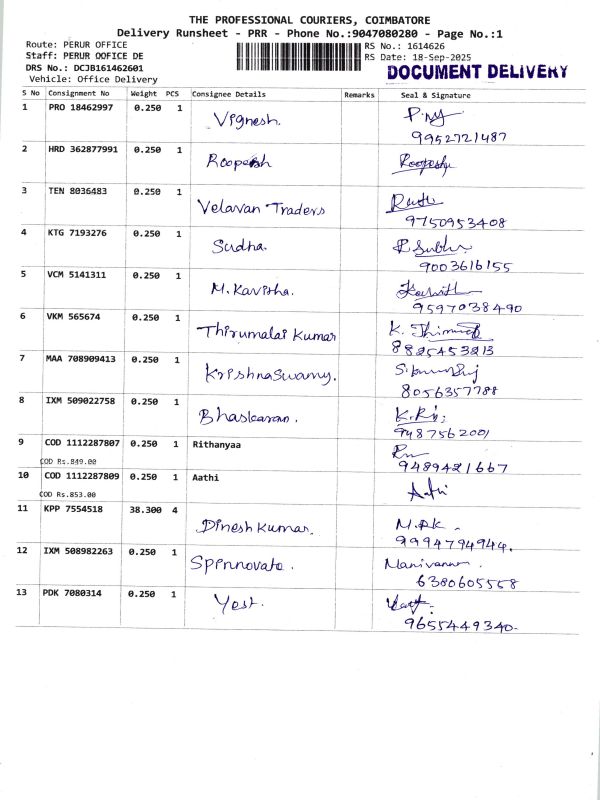 THE PROFESSIONAL COURIERS, COIMBATORE
Delivery Runsheet - PRR - Phone No.:9047080280 - Page No.:1
Route: PERUR OFFICE
RS No.: 1614626
Staff: PERUR OOFICE DE
RS Date: 18-Sep-2025
DRS No.: DCJB161462601
DOCUMENT DELIVERY
Vehicle: Office Delivery
S No Consignment No Weight PCS Consignee Details Remarks Seal & Signature
1 PRO 18462997 0.250 1 Vignesh.
9952721487
2 HRD 362877991 0.250 1 Roopesh Roopesh
3 TEN 8036483 0.250 1 Velavan Traders
9750953408
4 KTG 7193276 0.250 1 Sudha.
9003616155
5 VCM 5141311 0.250 1 M.Kavitha.
9597038490
6 VKM 565674 0.250 1 Thirumalai Kumar K.
8825453213
7 MAA 708909413 0.250 1 Krishnaswamy.
8056357788
8 IXM 509022758 0.250 1 Bhaskaran.
9487562001
9 COD 1112287807 0.250 1 Rithanyaa
COD Rs.849.00
9489421667
10 COD 1112287809 0.250 1 Aathi
COD Rs.853.00
11 KPP 7554518 38.300 4 Dinesh Kumar.
9994794944.
12 IXM 508982263 0.250 1 Spinnovate.
6380605558
13 PDK 7080314 0.250 1 Yest.
9655449340-